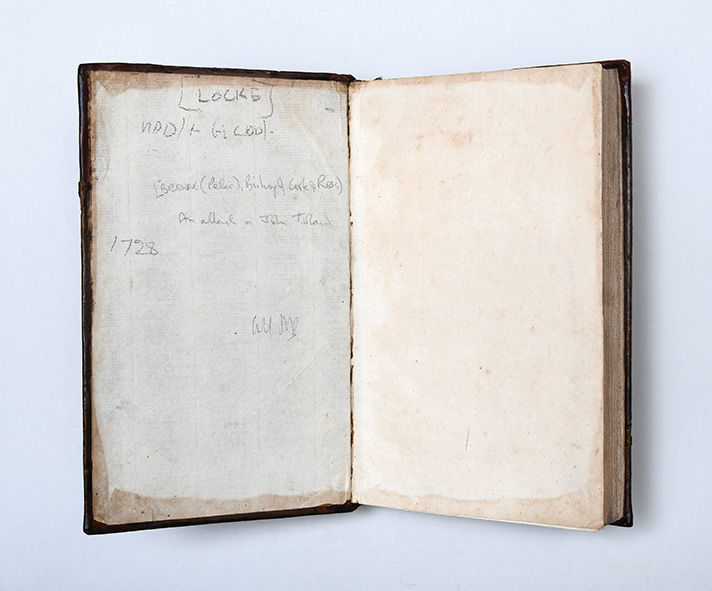 [LOCKE]
[BROWNE (Peter), Bishop of Cork & Ross]
An attack on John Toland
1728